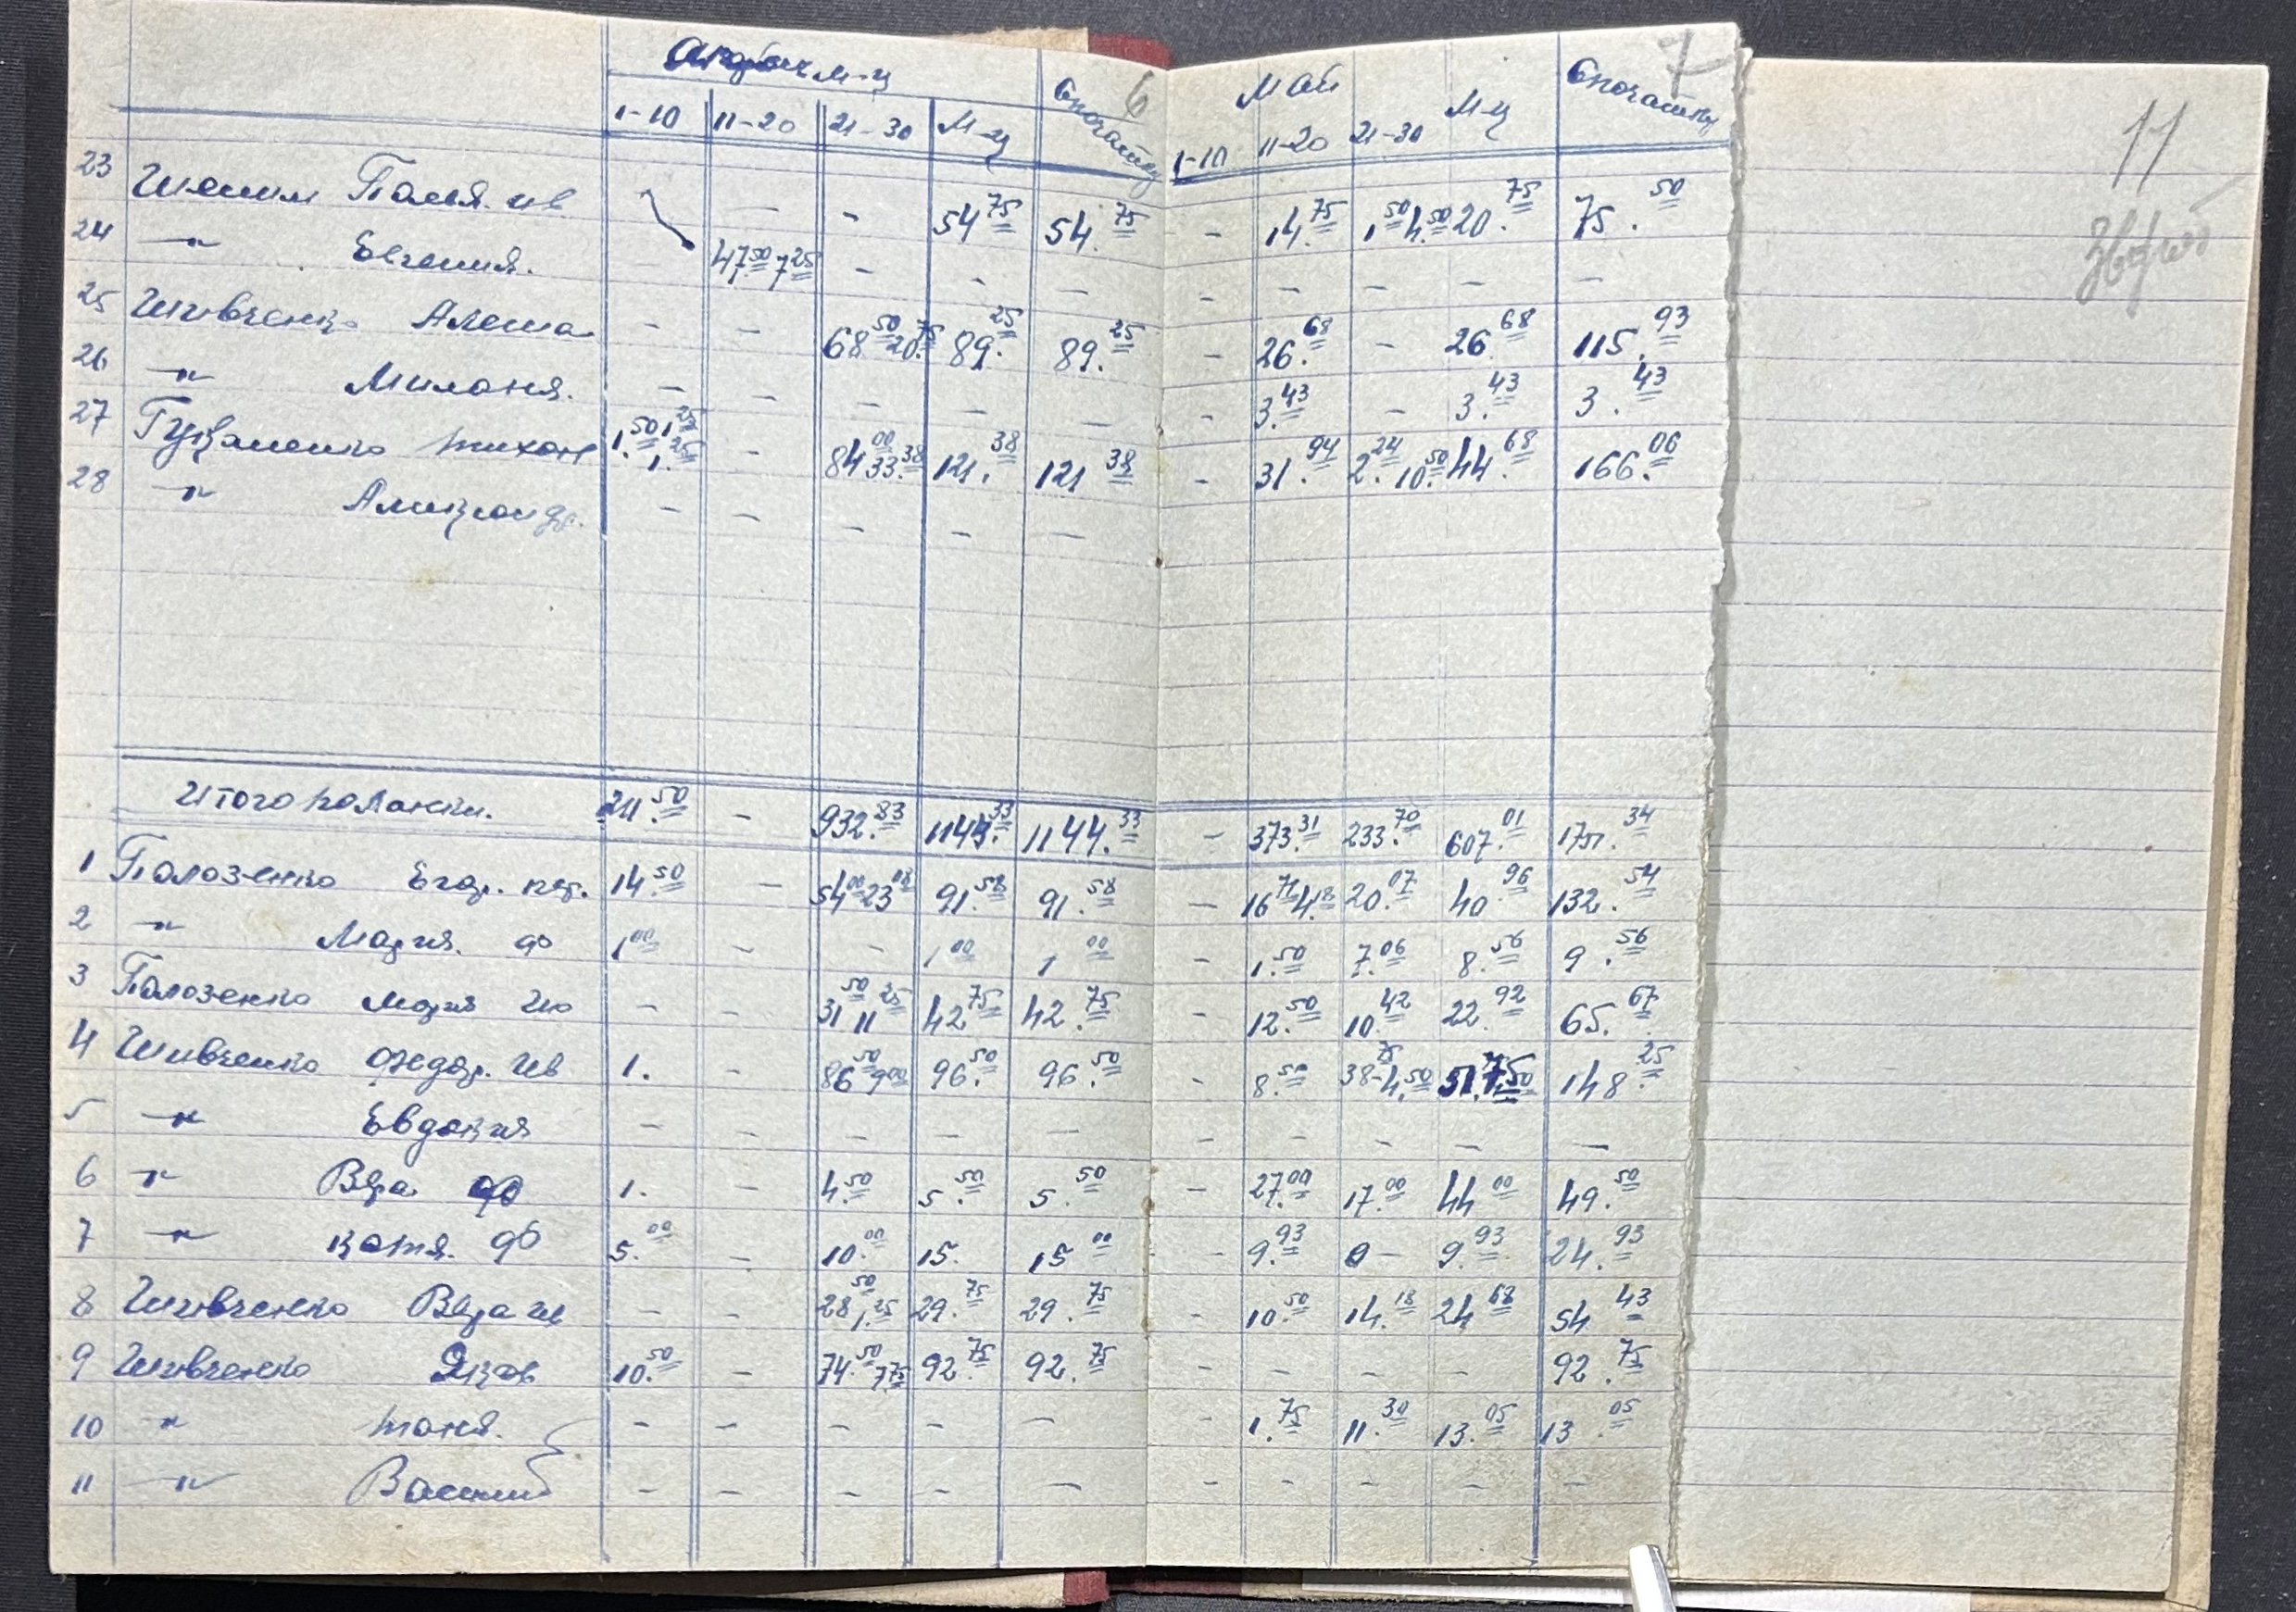 м-ц 6 май 7
1-10 11-20 21-30 м-ц спочатку 1-10 11-20 21-30 м-ц спочатку 11
23 - - 54.75 54.75 - 14.75 1.50 4.50 20.75 75.50
24 -"- Евгения. 47.50 7.25 - - - - - - - -
25 Шивченко Алеша - - 68.50 20.75 89.25 89.25 - 26.68 - 26.68 115.93
26 -"- Миланя. - - - - - - 3.43 - 3.43 3.43
27 Тихон 1.50 1.25 1.25 - 84.00 33.38 121.38 121.38 - 31.94 2.24 10.50 44.68 166.06
28 -"- - - - - -
Итого по ланки. 211.50 - 932.83 1144.33 1144.33 - 373.31 233.70 607.01 1751.34
1 Полозенко Егор. 14.50 - 54.00 23.08 91.58 91.58 - 16.71 4.18 20.07 40.96 132.54
2 -"- Мария. Ф 1.00 - - 1.00 1.00 - 1.50 7.06 8.56 9.56
3 Полозенко Мария - - 31.50 11.25 42.75 42.75 - 12.50 10.42 22.92 65.67
4 Шивченко Федор. Ив 1. - 86.50 9.00 96.50 96.50 - 8.50 38.75 4.50 148.25
5 -"- Евдокия - - - - - - - - - -
6 -"- Вера Ф 1. - 4.50 5.50 5.50 - 27.00 17.00 44.00 49.50
7 -"- Катя. Ф 5.00 - 10.00 15. 15.00 - 9.93 0 - 9.93 24.93
8 Шивченко Вера Ив - - 28.50 1.25 29.75 29.75 - 10.50 14.18 24.68 54.43
9 Шивченко Яков 10.50 - 74.50 7.75 92.75 92.75 - - - - 92.75
10 -"- Таня. - - - - - - 1.75 11.30 13.05 13.05
11 -"- Василь - - - - - - - - - -